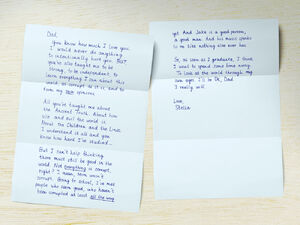 Dad,
You know how much I love you.
I would never do anything
to intentionally hurt you. But
you've also taught me to be
strong, to be independent, to
learn everything I can about this
world as corrupt as it is, and to
form my own opinions.
All you've taught me about
the Ancient Truth. About how
vile and evil the world is.
About the Children and the Limits.
I understand it all and you
know how hard I've studied.
But I can't help thinking
there must still be good in the
world. Not everything is corrupt,
right? I mean, Mom wasn't
corrupt. Going to school, I've met
people who seem good, who haven't
been corrupted at least all the way
yet. And Jake is a good person,
a good man. And his music speaks
to me like nothing else ever has.
So, as soon as I graduate, I
I want to spend some time away.
To look at the world through my
own eyes. I'll be OK, Dad.
I really will.
Love,
Stella